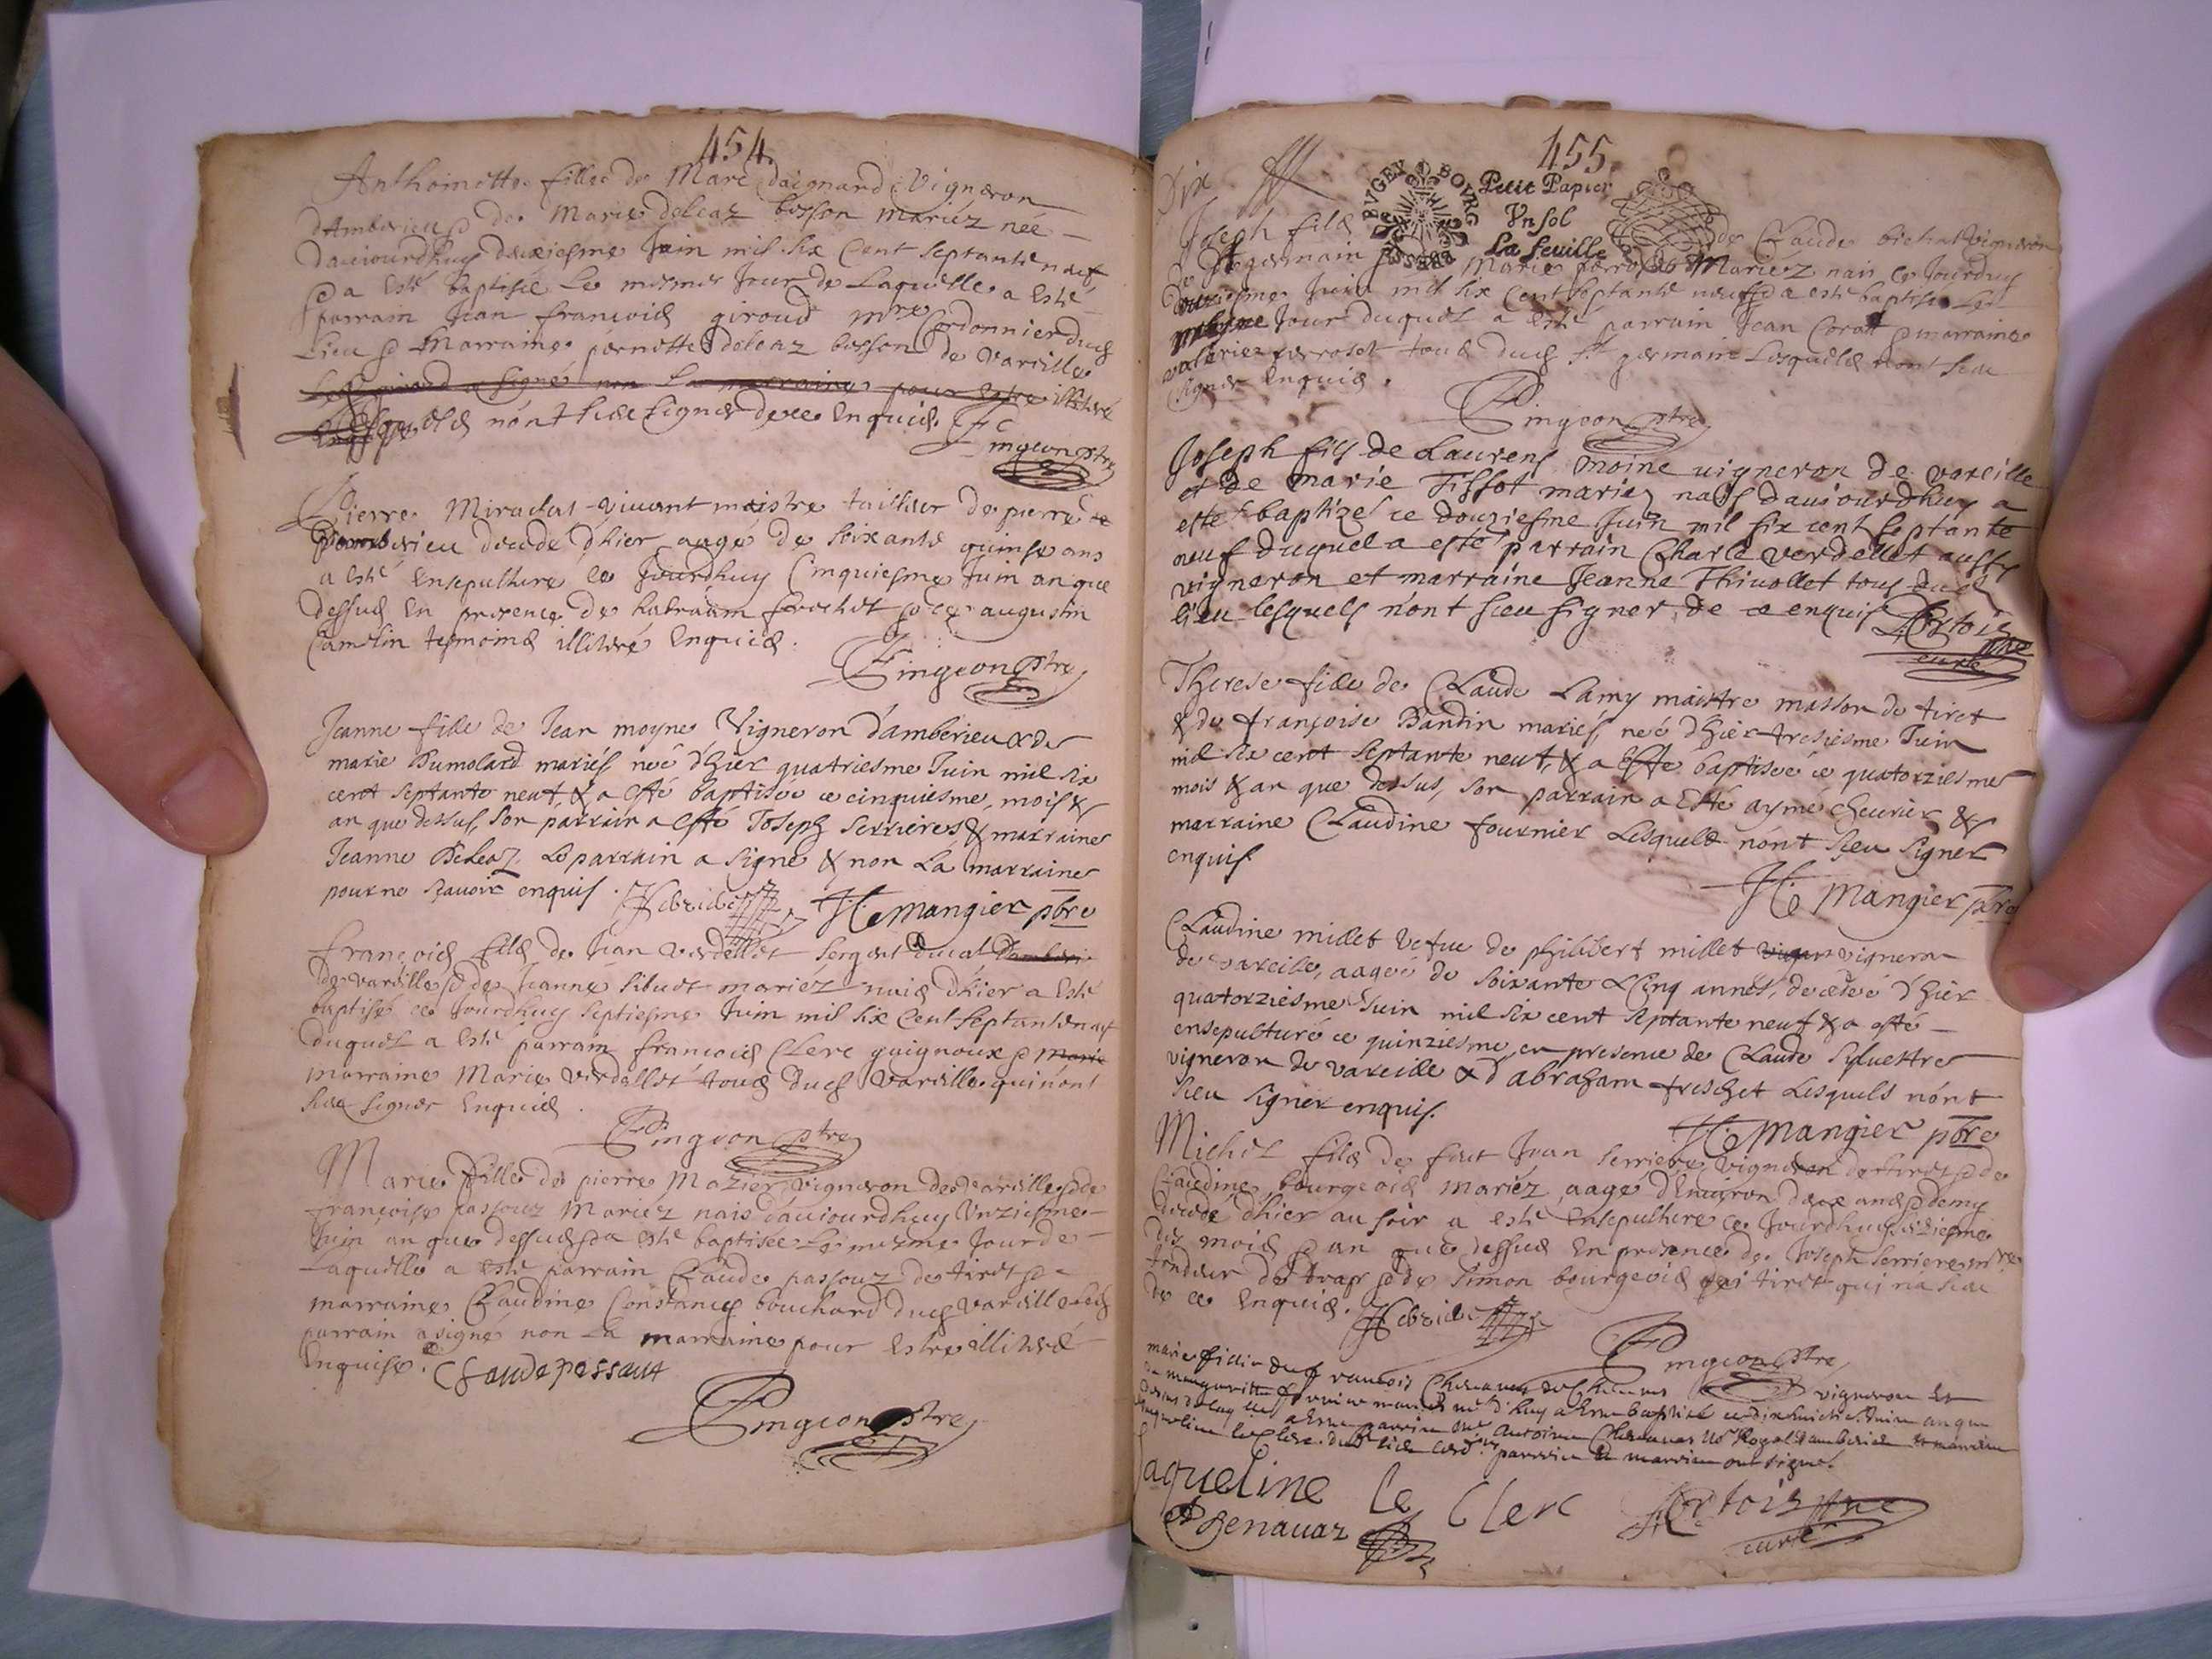 454
Anthoinette fille de Marc daignard Vigneron
dAmberieu & de Marie deleaz bosson mariéz née
daujourdhuy deuxiesme Juin mil six Cent septante neuf
& a esté baptisée Le mesme Jour de Laquelle a esté
parrain Jean francois giroud mre Cordonnier dud
Lieu & Marraine pernette deleaz bosson de Vareille
a signé non La marraine pour estre illiteré
Lesquels nont sceu signer de ce Enquis
Pingeon ptre
Pierre Miraclat vivant maistre tailleur de pierre
dAmberieu decedé dhier aagé de soixante quinse ans
a esté Ensepulturé ce Jourdhuy Cinquiesme Juin an que
dessus En presence de habraam frechet & de augustin
Camelin tesmoins illiteré Enquis.
Pingeon ptre
Jeanne fille de Jean moyne Vigneron d'ambérieu & de
marie Dumolard mariés neé d'hier quatriesme Juin mil six
cent septante neuf, & a esté baptisée ce cinquiesme, mois &
an que dessus, son parrain a esté Joseph Serrieres & marraine
Jeanne Deleaz. Le parrain a signé & non La marraine
pour ne sçavoir enquis.
H. Mangier pbre
francois fils de Jean Verdellet sergent ducal
de Vareille & de Jeanne sibuet mariéz nais dhier a esté
baptisé ce Jourdhuy septiesme Juin mil six Cent septante neuf
duquel a esté parrain francois Clerc guignoux & marie
marraine Marie Verdellet tous dud Vareille qui nont
sceu signer Enquis.
Pingeon ptre
Marie fille de pierre Mazier Vigneron de Vareille & de
francoise passouz Mariéz nais daujourdhuy Unziesme
Juin an que dessus & a esté baptisée Le mesme Jour de
Laquelle a esté parrain Claude passouz de tiret &
marraine Claudine Constance bouchard dud Vareille Led
parrain a signé non La marraine pour Estre illiteré
Enquise. Claude passaut
Pingeon ptre
455
Dix
BVGEY BOVRG BRESSE
Petit Papier
Vn sol
La feuille
Joseph fils de Claude bichat Vigneron
de St germain & de Marie perroset Mariéz nais ce Jourdhuy
Juin mil six Cent septante neuf & a esté baptisé Le
mesme Jour duquel a esté parrain Jean Corat & marraine
perroset tous dud St germain Lesquels n'ont sceu
signer Enquis.
Pingeon ptre
Joseph fils de Laurens moine vigneron de vareille
et de marie Tissot mariez nais daujourdhuy a
esté baptizé ce douziesme Juin mil six cent septante
neuf duquel a esté parrain Charle verdellet aussy
vigneron et marraine Jeanne Thivollet tous dud
lieu lesquels n'ont sceu signer, de ce enquis
ptre
curé
Therese fille de Claude Lamy maistre masson de tiret
& de françoise Bandin mariés, neé d'hier tresiesme Juin
mil six cent septante neuf, & a esté baptisée ce quatorziesme
mois & an que dessus, son parrain a Esté aymé cheurier &
marraine Claudine fournier Lesquels n'ont sceu signer
enquis.
H. Mangier pbre
Claudine millet vefue de philibert millet vigneron
de vareille, aageé de soixante & cinq annés, decedeé d'hier
quatorziesme Juin mil six cent septante neuf & a esté
ensepulturé ce quinziesme, en presence de Claude Syluestre
vigneron de vareille & d'abraham freschet Lesquels n'ont
sceu signer enquis.
H. Mangier pbre
Michel fils de feu Jean Serriere Vigneron de tiret & de
Claudine bourgeois mariéz aagé d'Environ deux ans & demy
decedé dhier au soir a esté Ensepulturé ce Jourdhuy seziesme
des mois & an que dessus En presence de Joseph Serriere mre
tondeur de drap & de simon bourgeois de tiret qui na sceu
de ce Enquis.
Pingeon ptre
marie fillie de francois Chenavaz vigneron et
de margueritte mariés née d'huy a esté baptisé ce dix huictie. Juin an que
dessus de laquelle a esté parrain Me Antoine Chenavaz Nre Royal d'amberieu & marraine
Jaqueline le Clerc dud lieu parrain & marraine ont signé.
Jaqueline le Clerc
Chenavaz
ptre
curé